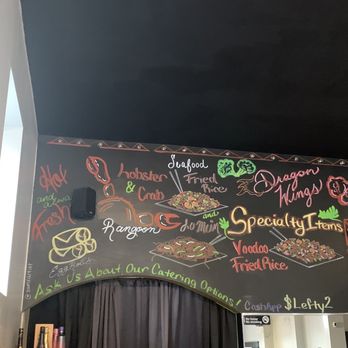 Hot
and always
Fresh
Lobster
& Crab
Rangoon
Eggrolls
Seafood
Fried
Rice
and
Lo Mein
Dragon
Wings
Specialty Items
Voodoo
Fried Rice
Ask Us About Our Catering Options!
CashApp $Lefty2